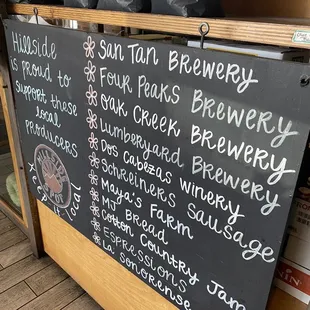 Hillside
is proud to
support these
local
producers
San Tan Brewery
Four Peaks Brewery
Oak Creek Brewery
Lumberyard Brewery
Dos Cabezas Winery
Schreiners Sausage
Maya's Farm
MJ Bread
Cotton Country Jam
Espressions
La Sonorense
it local